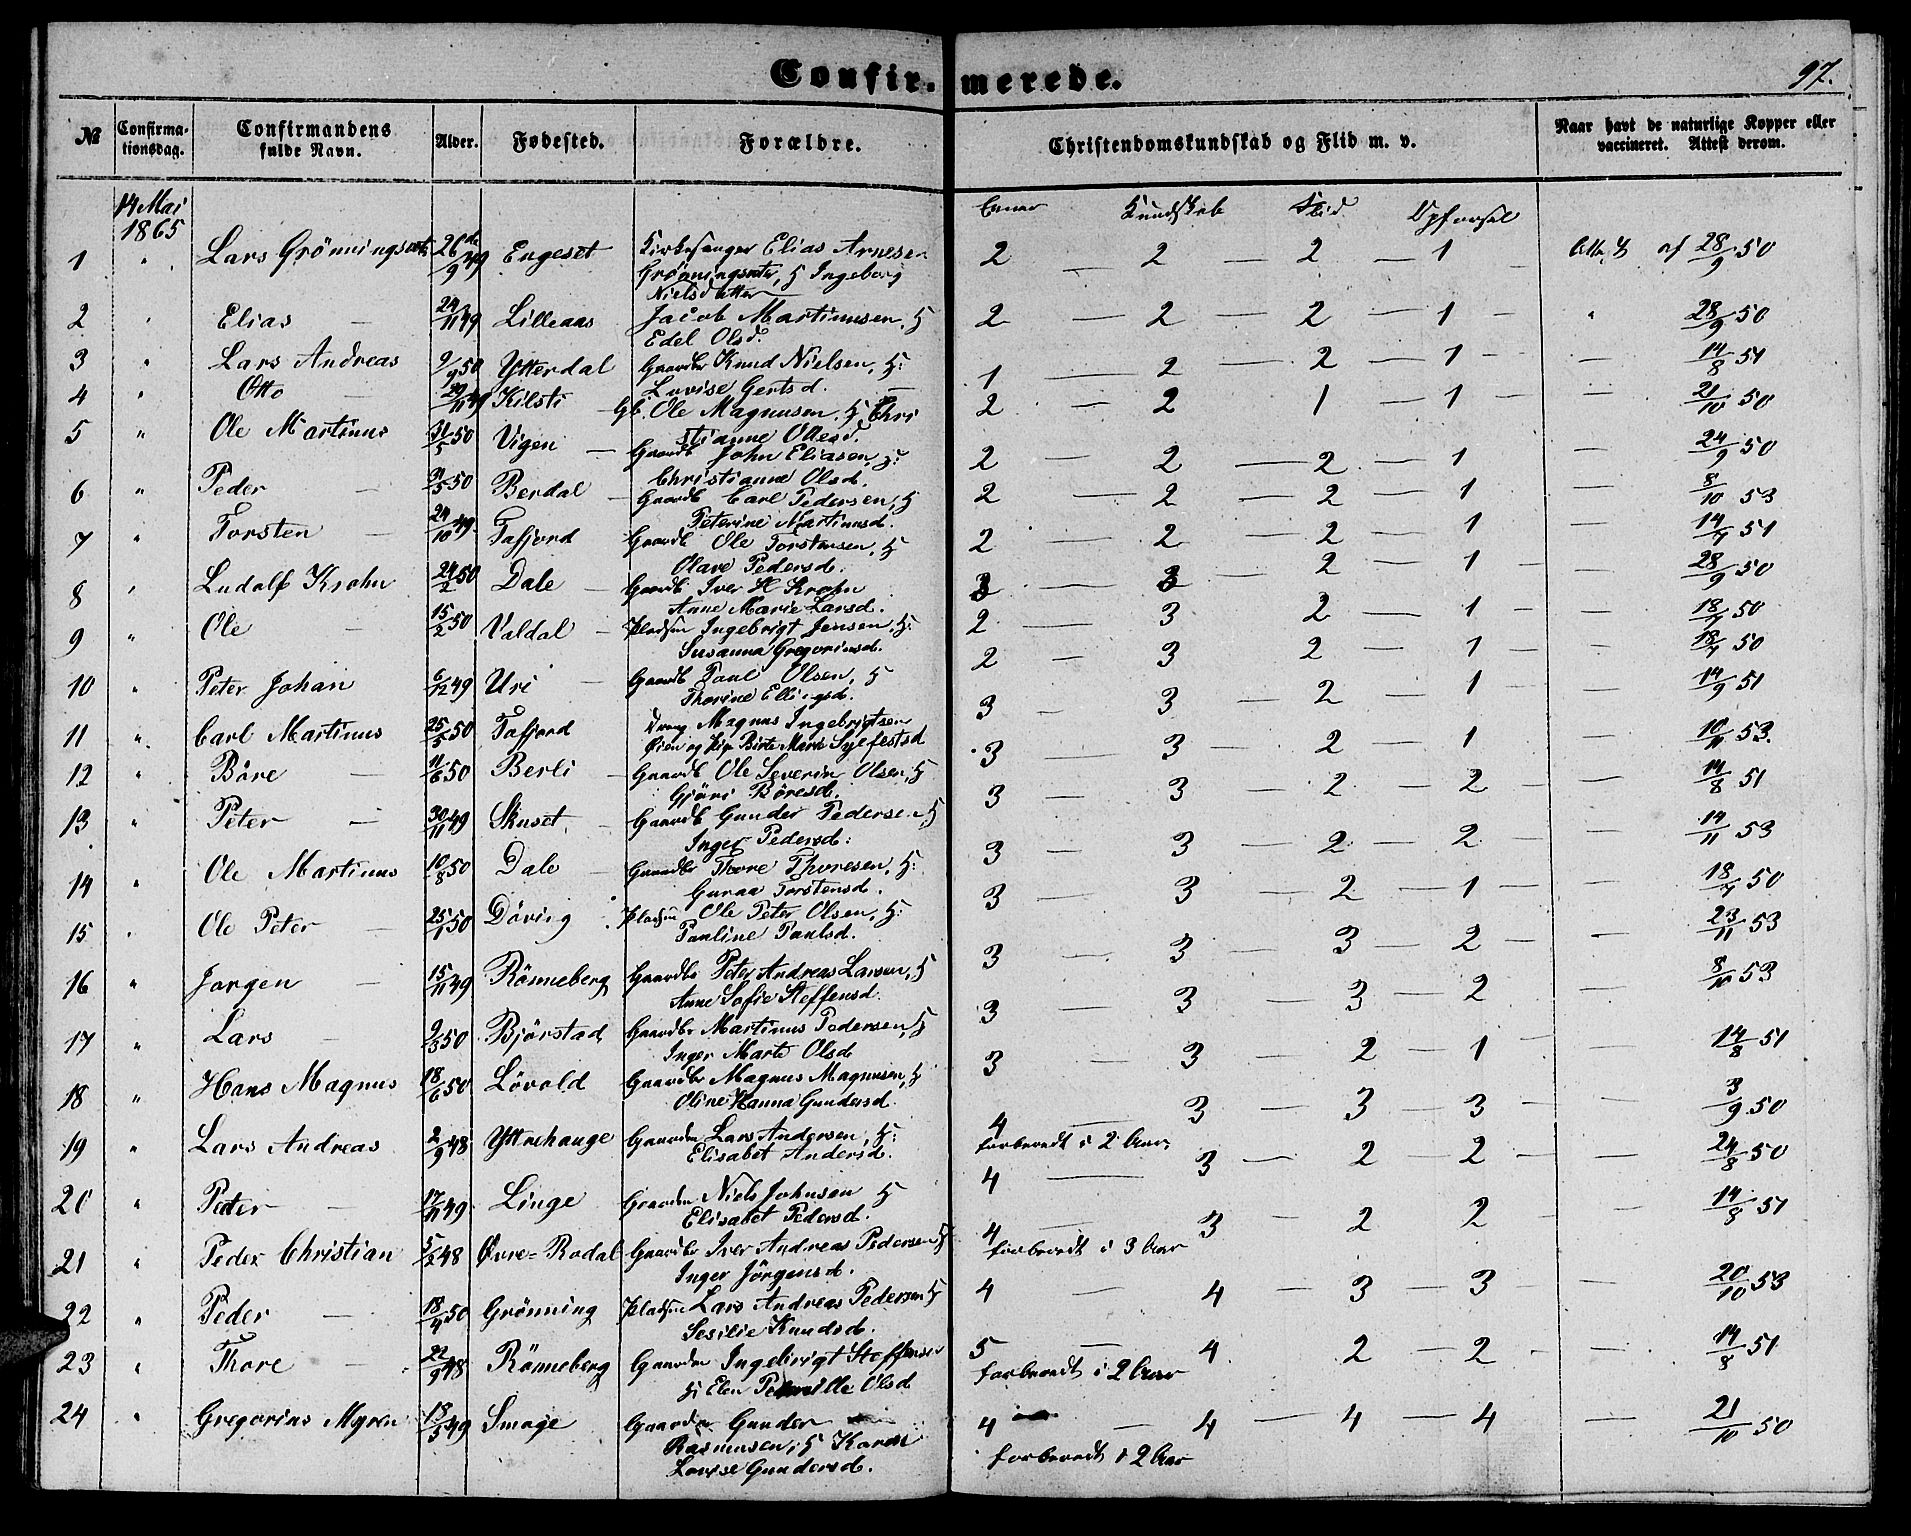 Confirmerede.
97.
№ Confirma-tionsdag. Confirmandens fulde Navn. Alder. Fødested. Forældre. Christendomskundskab og Flid m. v. Naar havt de naturlige Kopper eller vaccineret. Attest derom.
14 Mai 1865 Evner Kundskab Flid Opførsel
1 " Lars Grönningsæter 26de/9 49 Engeset Kirkesanger Elias Arnesen 2 — 2 — 2 — 1 — Attest af 28/9 50
Grönningsæter, H Ingeborg
Nielsdatter
2 " Elias — 24/11 49 Lilleaas Jacob Martinusen, H 2 — 2 — 2 — 1 — " 28/9 50
Edel Olsd.
3 " Lars Andreas 9/9 50 Ytterdal Gaardbr Knud Nielsen, H: 1 — 2 — 2 — 1 — 14/8 51
Lovise Gertsd.
4 " Otto — 29/11 49 Kilsti — Gb. Ole Magnusen, H Chri 2 — 2 — 1 — 1 — 21/10 50
stianne Ottesd.
5 " Ole Martinus 31/5 50 Vigen — Gaardb John Eliasen, H: 2 — 2 — 2 — 1 — 24/9 50
Christianne Olsd.
6 " Peder — 9/5 50 Berdal — Gaardb Carl Pedersen, H 2 — 2 — 2 — 1 — 8/10 53
Peterine Martinusd.
7 " Torsten — 24/10 49 Tafjord Gaardb Ole Torstensen, H 2 — 2 — 2 — 1 — 14/7 51
Olave Pedersd.
8 " Ludolf Krohn 24/2 50 Dale — Gaardb Iver H Krohn 3 — 3 — 2 — 1 — 28/9 50
Anne Marie Larsd.
9 " Ole — 15/2 50 Valdal — Pladsm Ingebrigt Jensen, H: 2 — 3 — 2 — 1 — 18/7 50
Susanna Gregoriusd. 2 — 3 — 2 — 1 — 18/7 50
10 " Peter Johan 6/12 49 Uri — Gaardb Paul Olsen, H 3 — 3 — 2 — 1 — 14/9 51
Thorine Ellingsd.
11 " Carl Martinus 25/5 50 Tafjord Dreng Magnus Ingebrigtsen 3 — 3 — 2 — 1 — 10/11 53.
Øien og Pige Birte Marie Sylfestsd
12 " Böre — 11/6 50 Berli — Gaardb Ole Severin Olsen, H 3 — 3 — 2 — 2 — 14/8 51
Gjöri Böresd.
13 " Peter — 30/11 49 Skuset — Gaardb Gunder Pedersen H 3 — 3 — 2 — 2 — 14/11 53
Inger Pedersd:
14 " Ole Martinus 10/8 50 Dale — Gaardbr Thore Thoresen, H: 3 — 3 — 2 — 1 — 18/7 50
Guraa Torstensd.
15 " Ole Peter — 25/1 50 Döving Pladsm Ole Peter Olsen, H: 3 — 3 — 3 — 2 — 23/11 53
Pauline Paulsd.
16 " Jorgen — 15/11 49 Rönneberg Gaardbr Peter Andreas Larsen, H 3 — 3 — 3 — 2 — 8/10 53
Anne Sofie Steffensd.
17 " Lars — 9/3 50 Bjórstad Gaardbr Martinus Pedersen, H 3 — 3 — 2 — 1 — 14/8 51
Inger Marte Olsd
18 " Hans Magnus 18/6 50 Lövold Gaardbr Magnus Magnusen, H 4 — 3 — 3 — 3 — 3/9 50
Oline Hanna Gundersd.
19 " Lars Andreas 2/9 48 Yttrehauge Gaardbr Lars Andersen, H: forberedt i 2 Aar. 4 — 3 — 2 — 2 — 24/8 50
Elisabet Andersd.
20 " Peter — 17/11 49 Linge Gaardbr Niels Johnsen H 4 — 3 — 2 — 2 — 14/8 51
Elisabet Pedersd.
21 " Peder Christian 5/2 48 Øvre-Rodal Gaardbr Iver Andreas Pedersen H forberedt i 3 Aar 4 — 4 — 3 — 3 — 20/10 53
Inger Jörgensd.
22 " Peder — 18/4 50 Grönning Pladsm Lars Andreas Pedersen H 5 — 4 — 2 — 2 — 14/8 51
Sesilie Knudsd.
23 " Thore — 22/9 48 Rönneberg Gaardbr Ingebrigt Steffensen forberedt i 2 Aar
H Elen Pernille Olsd
24 " Gregorius Myren 18/5 49 Smoge Gaardbr Gunder 4 — 4 — 4 — 4 — 21/10 50
Rasmusen, H Karen forberedt i 2 Aar
Lovise Gundersd.